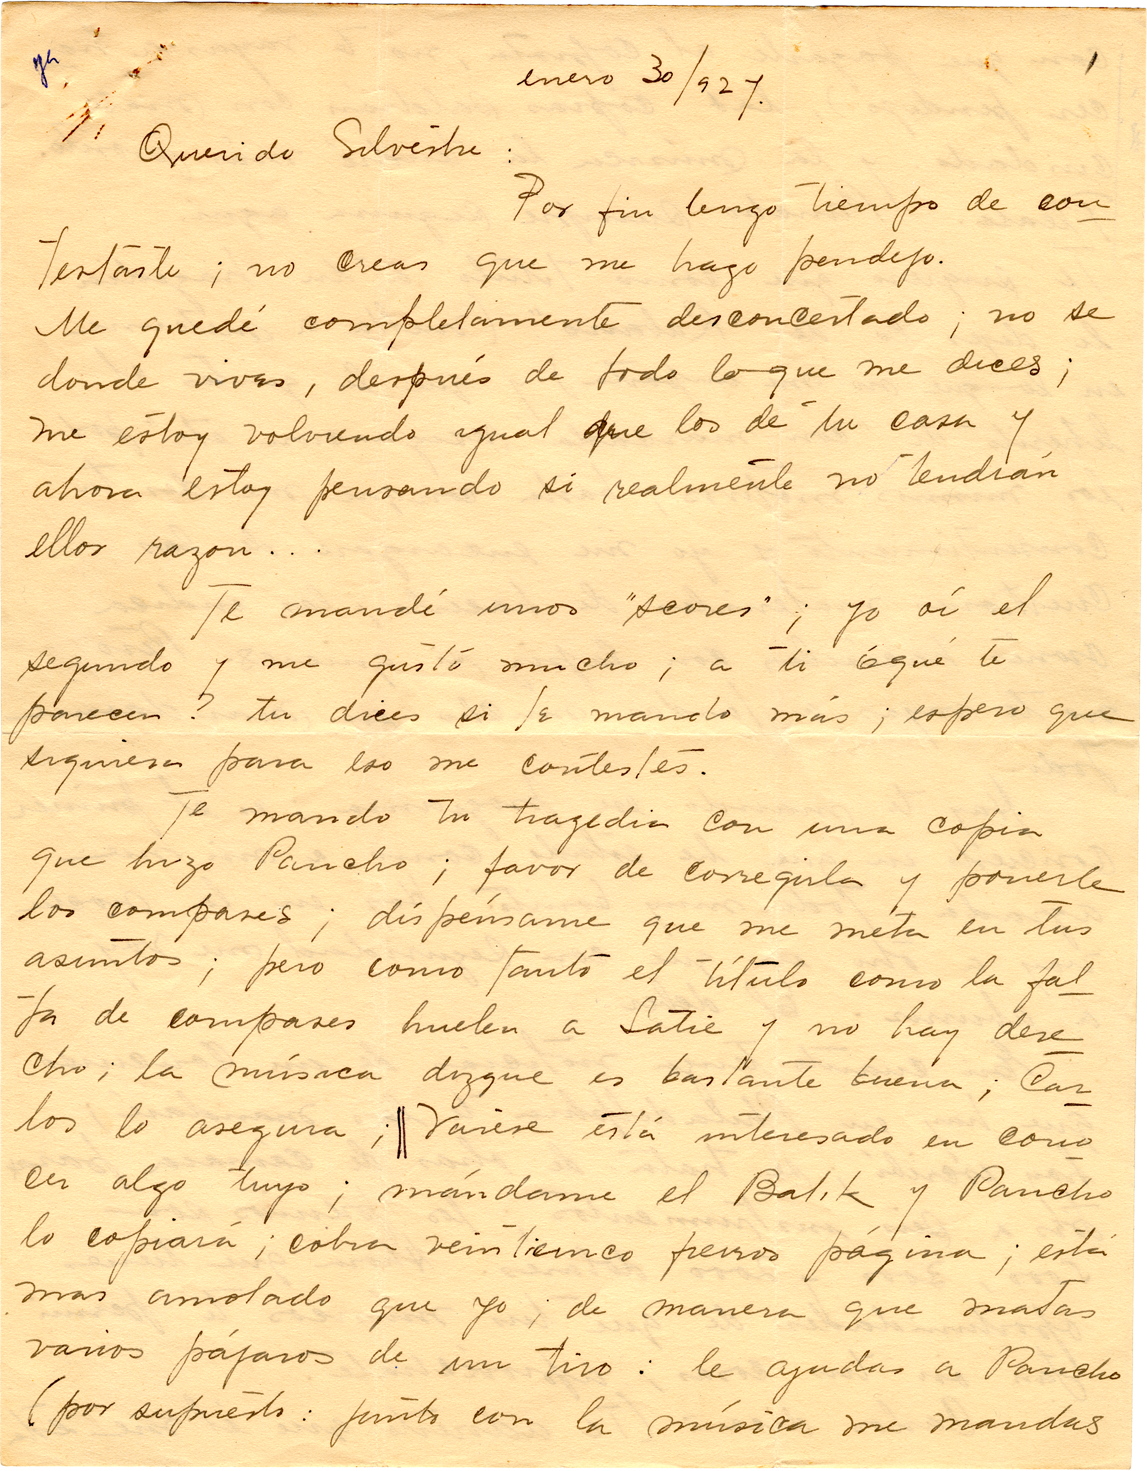 ya
1
enero 30/927.
Querido Silvestre:
Por fin tengo tiempo de con
testarte; no creas que me hago pendejo.
Me quedé completamente desconcertado; no se
donde vivas, después de todo lo que me dices;
me estoy volviendo igual que los de tu casa y
ahora estoy pensando si realmente no tendrán
ellos razon...
Te mandé unos "scores"; yo oí el
segundo y me gustó mucho; a ti ¿qué te
parecen? tu dices si te mando más; espero que
siquiera para eso me contestes.
Te mando tu tragedia con una copia
que hizo Pancho; favor de corregirla y ponerle
los compases; dispénsame que me meta en tus
asuntos; pero como tanto el título como la fal
ta de compases huelen a Satie y no hay dere
cho; la música dizque es bastante buena; Car
los lo asegura; || Varese está interesado en cono
cer algo tuyo; mándame el Batik y Pancho
lo copiará; cobra veinticinco fierros página; está
mas amolado que yo; de manera que matas
varios pájaros de un tiro: le ayudas a Pancho
(por supuesto: junto con la música me mandas